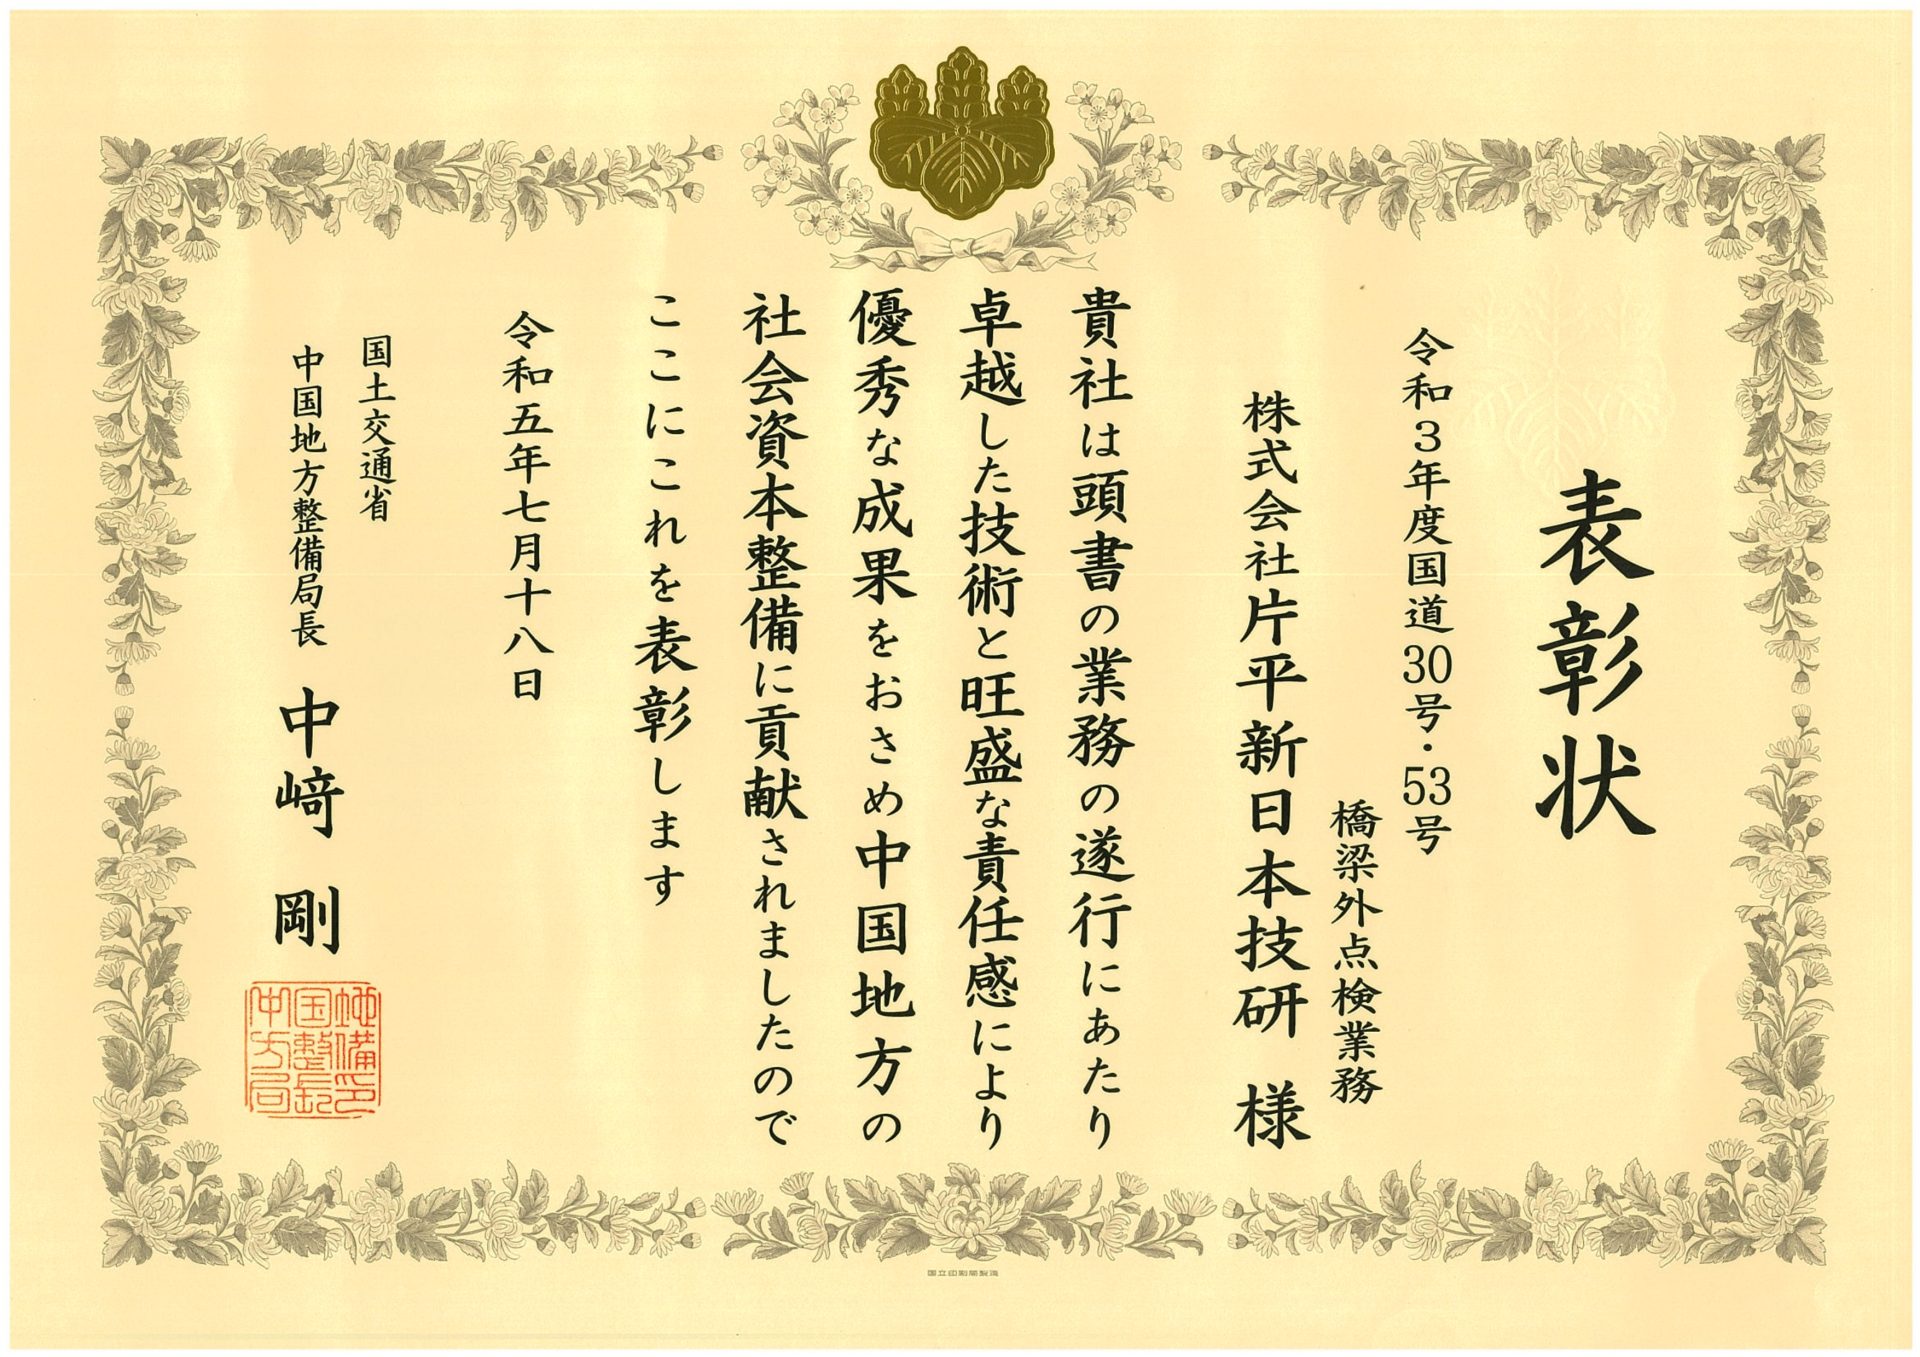 表彰状
令和３年度国道30号・53号
橋梁外点検業務
株式会社片平新日本技研　様
貴社は頭書の業務の遂行にあたり
卓越した技術と旺盛な責任感により
優秀な成果をおさめ中国地方の
社会資本整備に貢献されましたので
ここにこれを表彰します
令和五年七月十八日
国土交通省
中国地方整備局長　中﨑　剛
地備印
国整長
中方局
国立印刷局製造